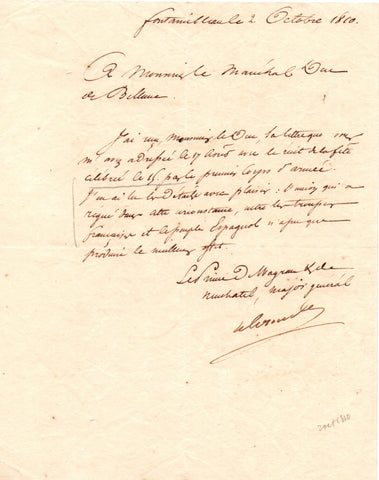 fontainebleau le 2 Octobre 1810.
A Monsieur le Maréchal Duc
de Bellune.
J'ai reçu, monsieur le Duc, la lettre que vous
m'avez adressée le 17 Août avec le récit de la fête
célébrée le 15 par le premier Corps d'armée.
J'en ai lu les détails avec plaisir : l'union qui a
regné dans cette circonstance, entre les troupes
françaises et le peuple Espagnol n'a pu que
produire le meilleur effet.
Le Prince de Wagram & de
neuchatel, major général
alexandre
2 oct 1810